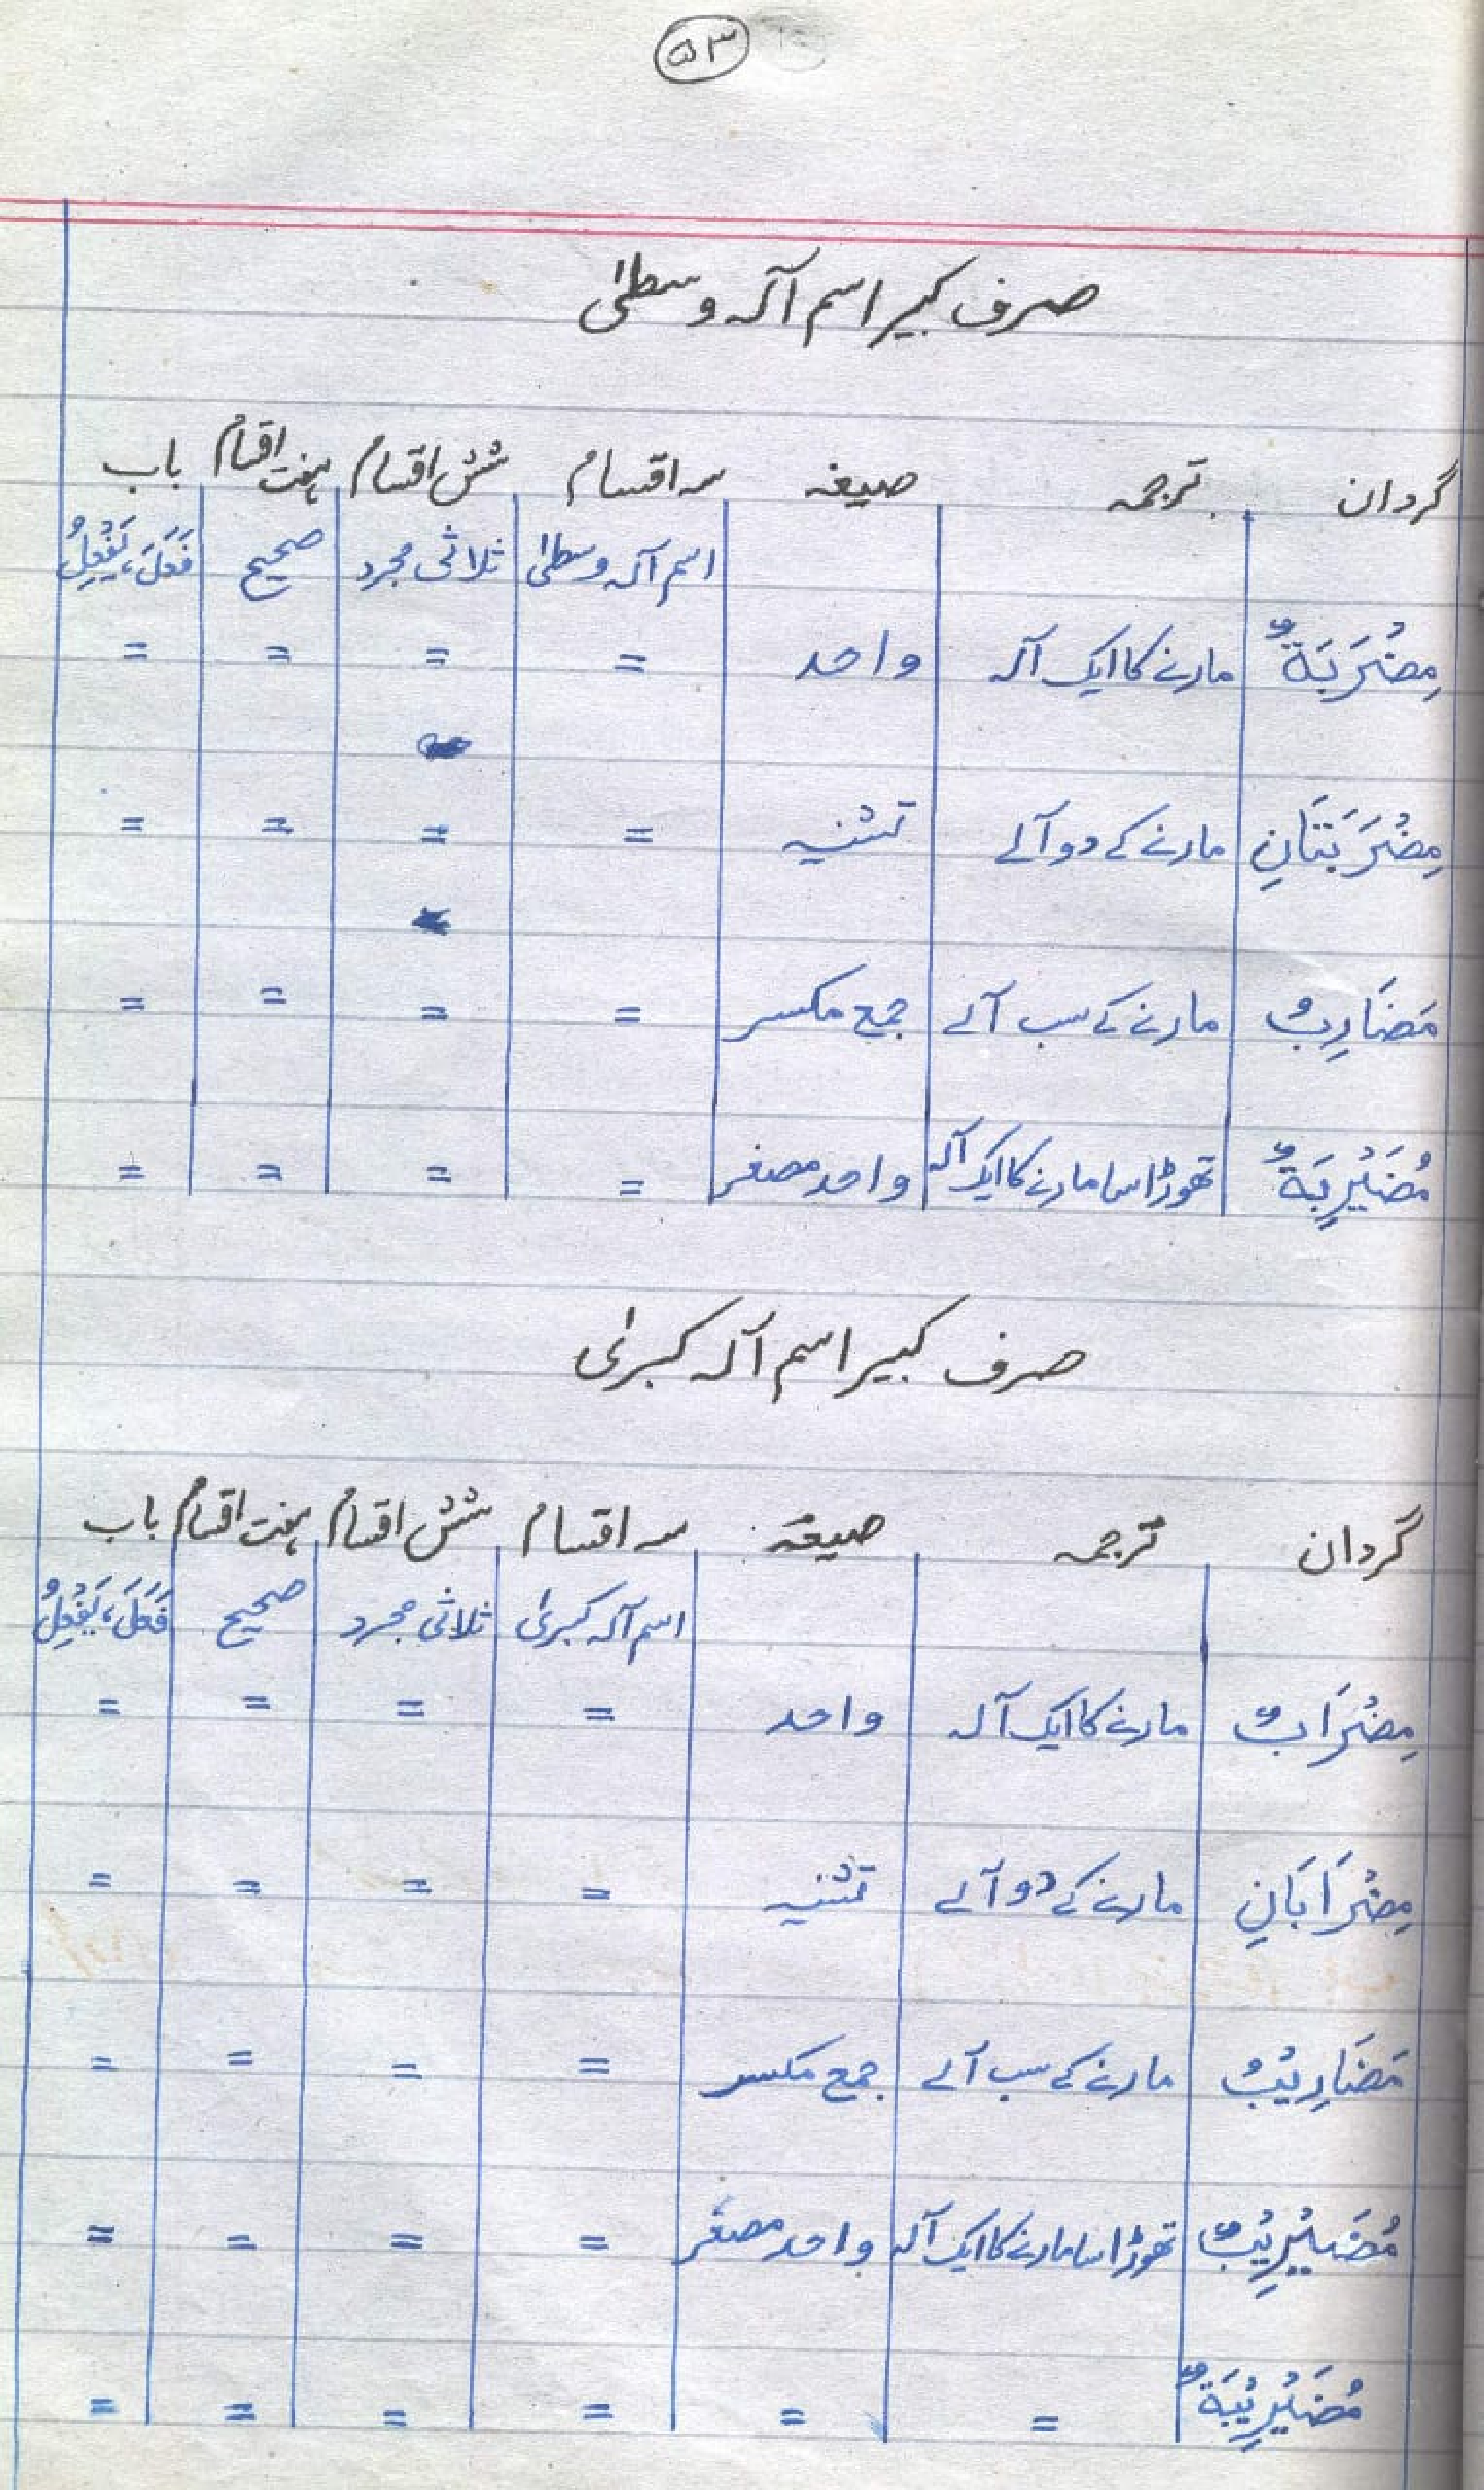 ۵۳
صرف کبیر اسم آلہ وسطیٰ
گردان ترجمہ صیغہ سہ اقسام شش اقسام ہفت اقسام باب
اسم آلہ وسطیٰ ثلاثی مجرد صحیح فَعَلَ، یَفْعِلُ
مِضْرَبَةٌ مارنے کا ایک آلہ واحد = = = =
مِضْرَبَتَانِ مارنے کے دو آلے تثنیہ = = = =
مَضَارِبُ مارنے کے سب آلے جمع مکسر = = = =
مُضَيْرِبَةٌ تھوڑا سا مارنے کا ایک آلہ واحد مصغر = = = =
صرف کبیر اسم آلہ کبریٰ
گردان ترجمہ صیغہ سہ اقسام شش اقسام ہفت اقسام باب
اسم آلہ کبریٰ ثلاثی مجرد صحیح فَعَلَ، یَفْعِلُ
مِضْرَابٌ مارنے کا ایک آلہ واحد = = = =
مِضْرَابَانِ مارنے کے دو آلے تثنیہ = = = =
مَضَارِيْبُ مارنے کے سب آلے جمع مکسر = = = =
مُضَيْرِيْبٌ تھوڑا سا مارنے کا ایک آلہ واحد مصغر = = = =
مُضَيْرِيْبَةٌ = = = = = =